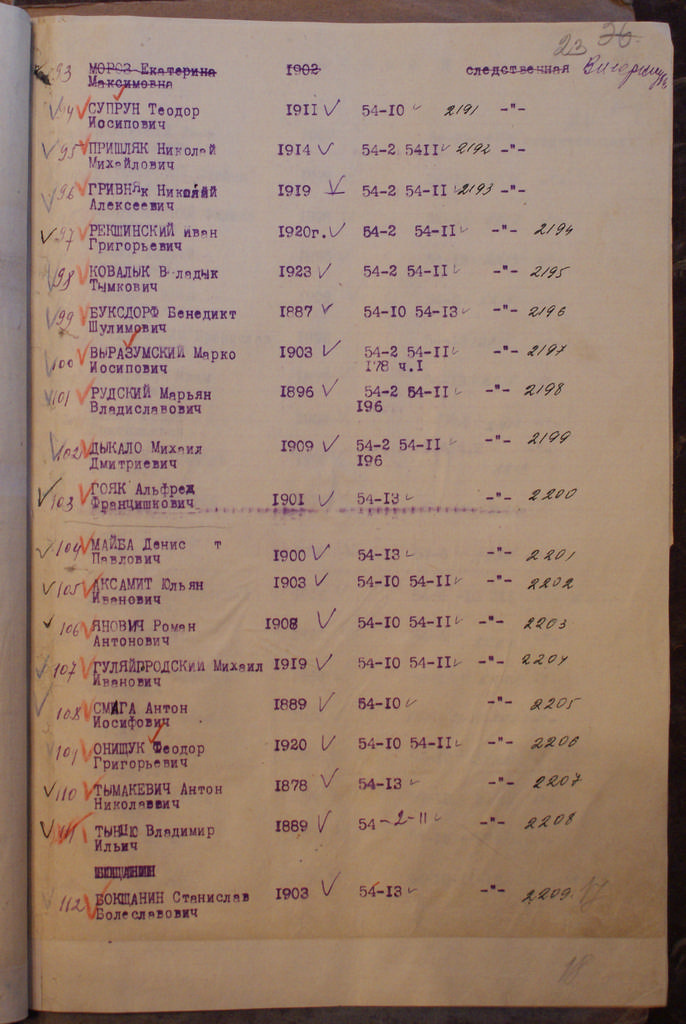 23 26
93 МОРОЗ Екатерина 1902 следственная
Максимовна
94 СУПРУН Теодор 1911 54-10 2191 -"-
Иосипович
95 ПРИШЛЯК Николай 1914 54-2 5411 2192 -"-
Михайлович
96 ГРИВНяк Николай 1919 54-2 54-11 2193 -"-
Алексеевич
97 РЕКШИНСКИЙ Иван 1920г. 54-2 54-11 -"- 2194
Григорьевич
98 КОВАЛЫК Владык 1923 54-2 54-11 -"- 2195
Тымкович
99 БУКСДОРФ Бенедикт 1887 54-10 54-13 -"- 2196
Шулимович
100 ВЫРАЗУМСКИЙ Марко 1903 54-2 54-11 -"- 2197
Иосипович 178 ч.I
101 РУДСКИЙ Марьян 1896 54-2 54-11 -"- 2198
Владиславович 196
102 ДЫКАЛО Михаил 1909 54-2 54-11 -"- 2199
Дмитриевич 196
103 ГОЯК Альфред
Францишкович 1901 54-13 -"- 2200
104 МАЙБА Денис т
Павлович 1900 54-13 -"- 2201
105 АКСАМИТ Юльян 1903 54-10 54-11 -"- 2202
Иванович
106 ЯНОВИЧ Роман 1908 54-10 54-11 -"- 2203
Антонович
107 ГУЛЯЙГРОДСКИЙ Михаил 1919 54-10 54-11 -"- 2204
Иванович
108 СМАГА Антон 1889 54-10 -"- 2205
Иосифович
109 ОНИЩУК Феодор 1920 54-10 54-11 -"- 2206
Григорьевич
110 ТЫМАКЕВИЧ Антон 1878 54-13 -"- 2207
Николаввич
111 Владимир 1889 54-2-11 -"- 2208
Ильич
112 БОКЩАНИН Станислав 1903 54-13 -"- 2209 17
Болеславович
18